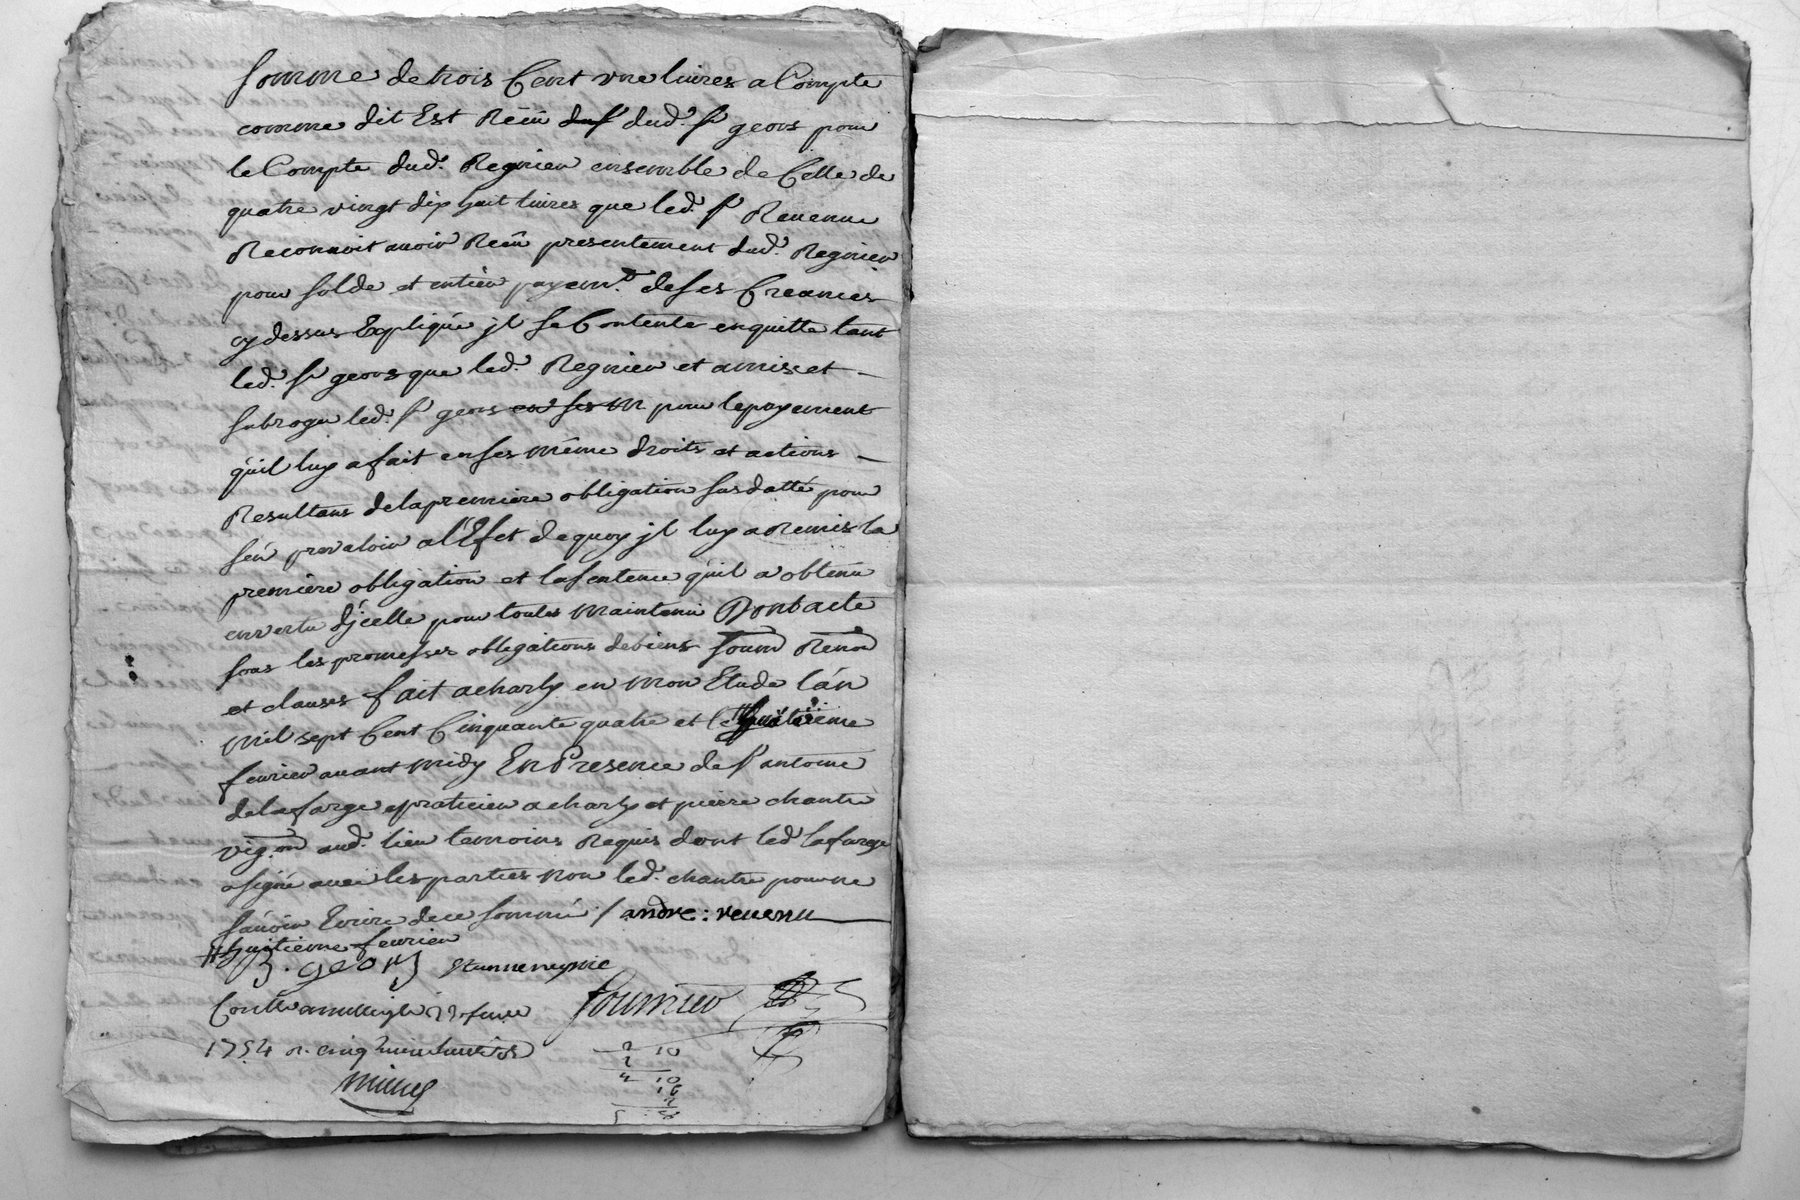 somme de trois Cent vne liures a Compte
comme dit Est Reëu dud.t sr geors pour
le Compte dud.t Regnier ensemble de Celle de
quatre vingt dix huit liures que led.t sr Reuenu
Reconnoit auoir Reëu presentement dud.t Regnier
pour solde et entier payem.t de ses Creances
cy dessus Expliquée jl se Contente en quitte tant
led.t sr geors que led.t Regnier et a mis et
subrogé led.t sr geors en ses m pour le payement
quil luy a fait en ses même droits et actions
Resultans de la premiere obligation susdattée pour
sen prevaloir a l'Efet de quoy jl luy a Remis la
premiere obligation et la sentence quil a obtenu
en vertu d'jcelle pour toutes maintenu Dont acte
sous les promesses obligations de biens soum Renon
et clauses fait a charly en mon Etude l'an
mil sept Cent Cinquante quatre et le
feurier auant midy En Presence de sr antoine
delafarge praticien a charly et pierre chantre
vig.on aud.t lieu temoins Requis dont led.t lafarge
a signé auec les parties non led.t chantre pour ne
sauoir Ecrire de ce sommé / andre : reuenu
huitieme feurier
B. geors
fournier
1754 R. cinq
2 10
2
4 10